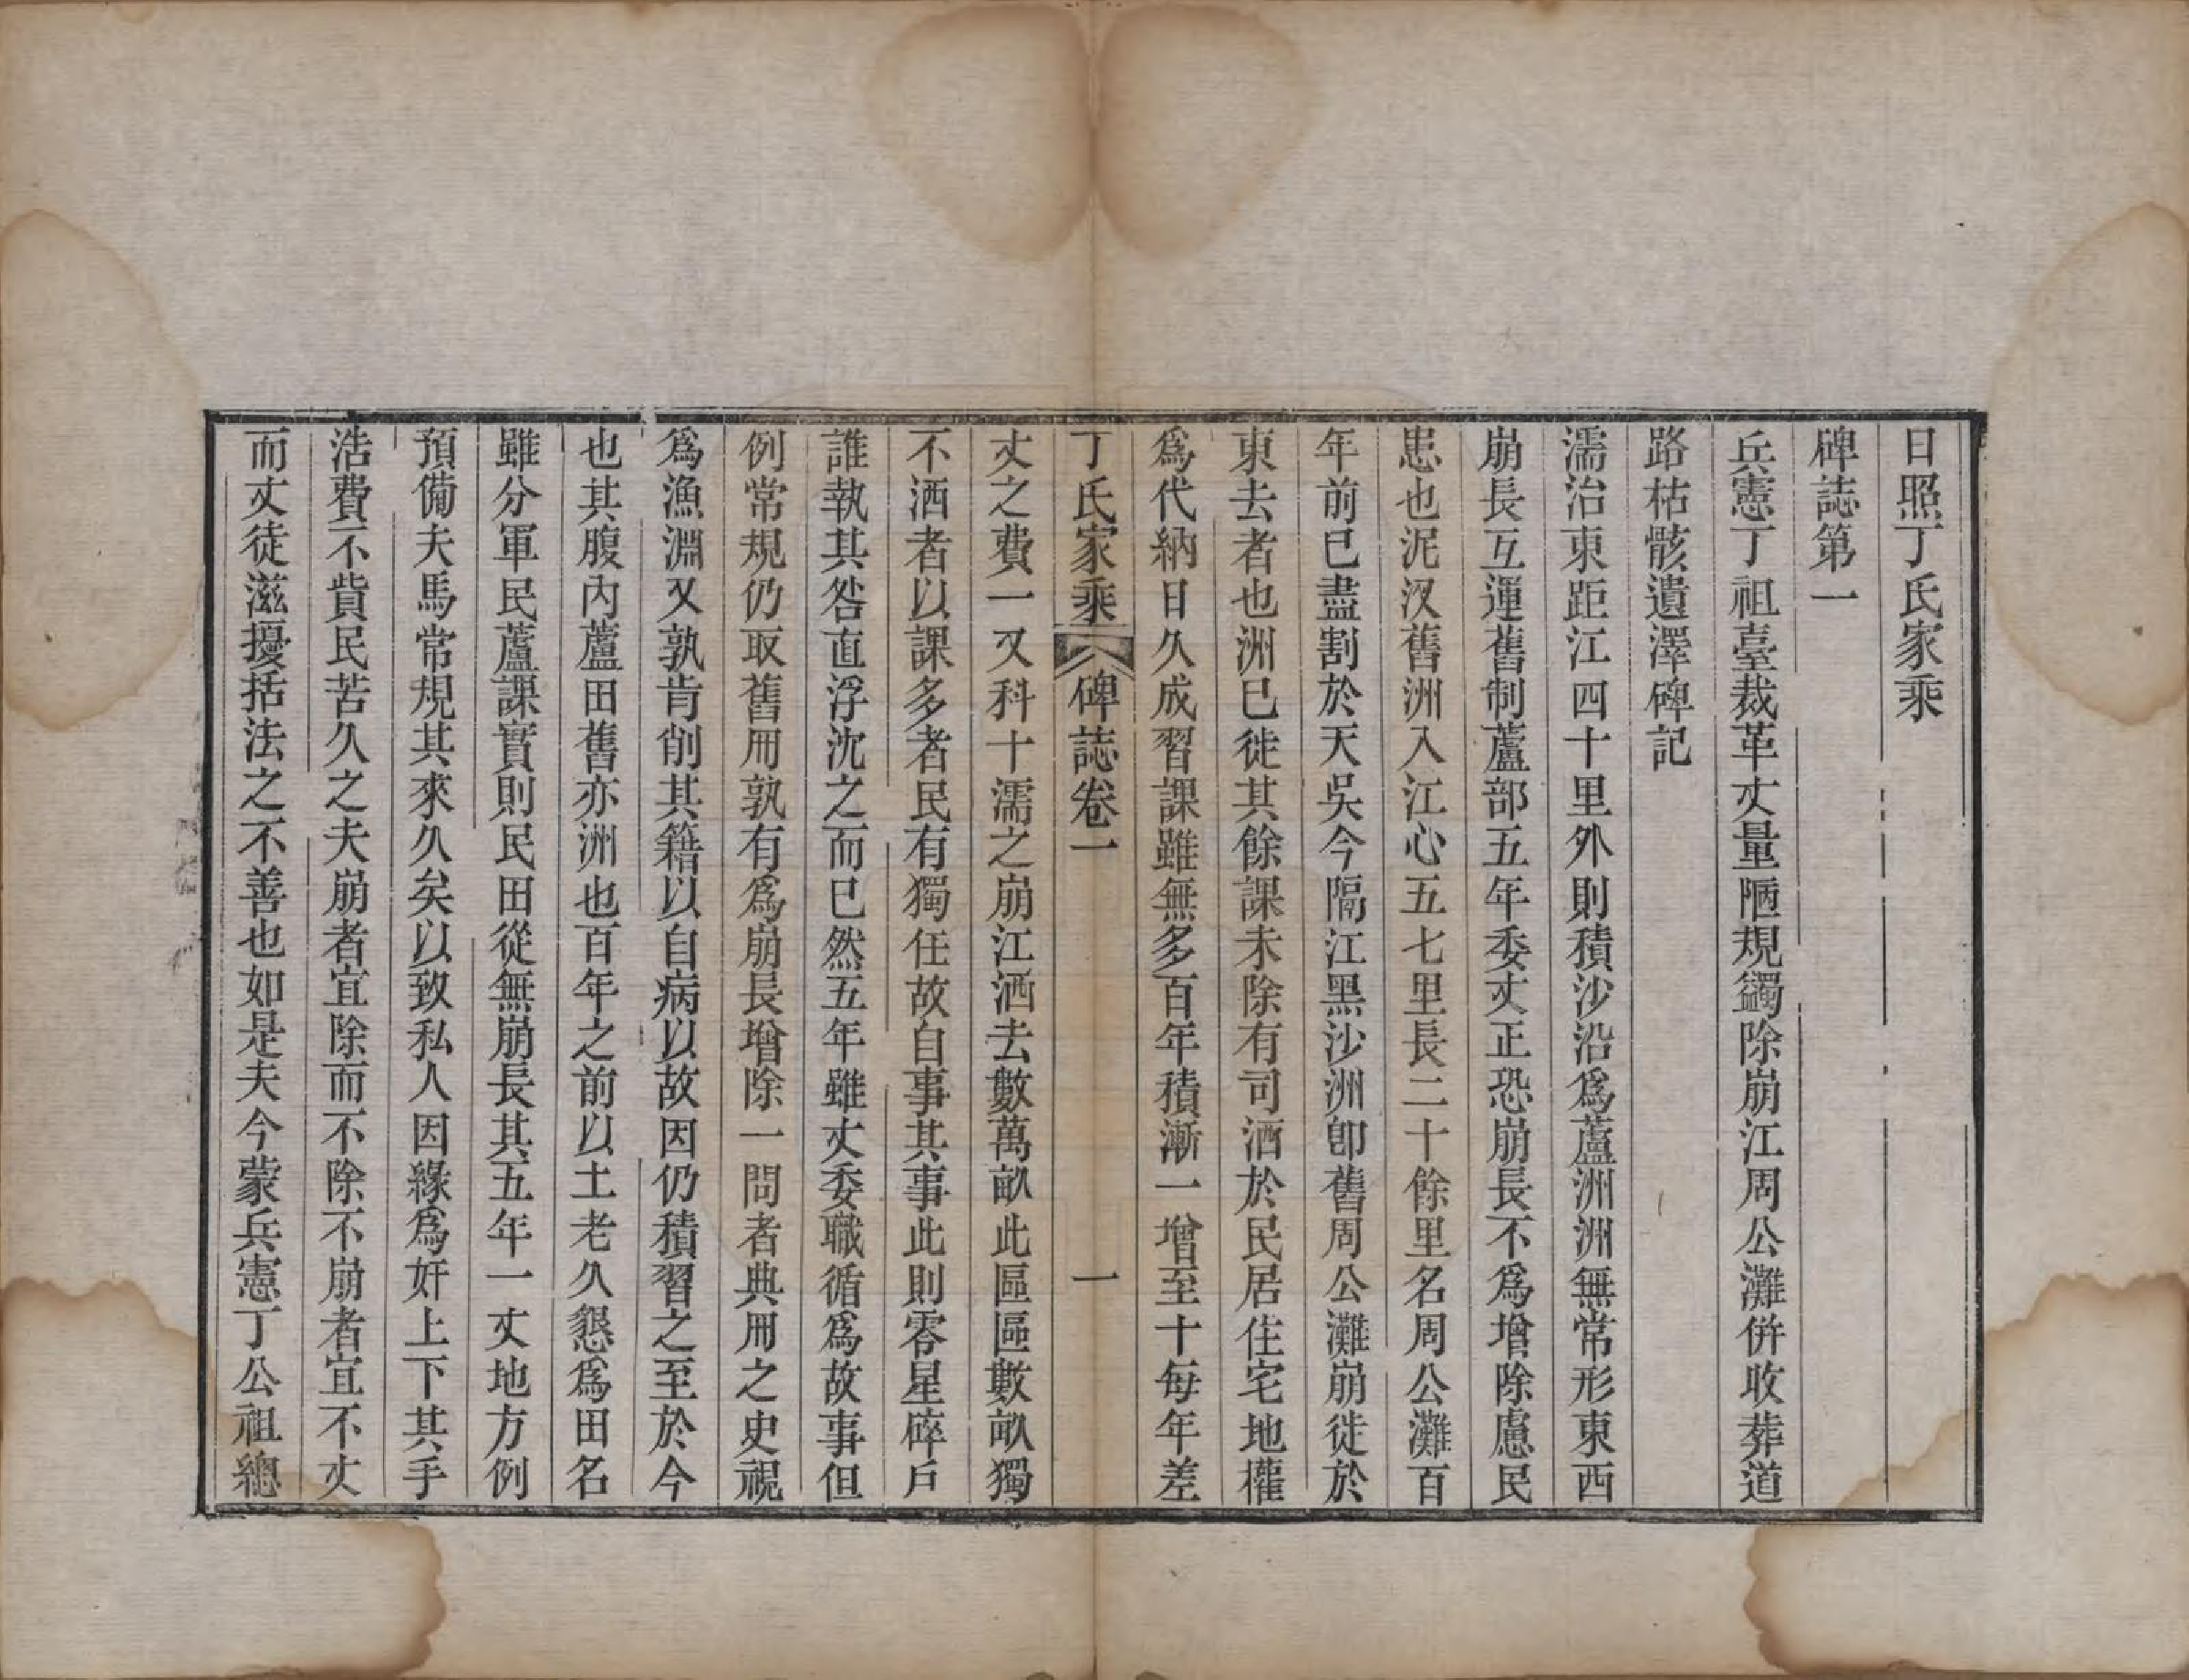 日照丁氏家乘
碑誌第一
兵憲丁祖臺裁革丈量陋規蠲除崩江周公灘併收葬道
路枯骸遺澤碑記
濡治東距江四十里外則積沙沿爲蘆洲洲無常形東西
崩長互運舊制蘆部五年委丈正恐崩長不爲增除慮民
患也泥汊舊洲入江心五七里長二十餘里名周公灘百
年前已盡割於天吳今隔江黑沙洲卽舊周公灘崩徙於
東去者也洲已徙其餘課未除有司洒於民居住宅地權
爲代納日久成習課雖無多百年積漸一增至十每年差
丁氏家乘 碑誌卷一 一
丈之費一又科十濡之崩江洒去數萬畝此區區數畝獨
不洒者以課多者民有獨任故自事其事此則零星碎戶
誰執其咎直浮沈之而已然五年雖丈委職循爲故事但
例常規仍取舊冊孰有爲崩長增除一問者典冊之史視
爲漁淵又孰肯削其籍以自病以故因仍積習之至於今
也其腹內蘆田舊亦洲也百年之前以土老久懇爲田名
雖分軍民蘆課實則民田從無崩長其五年一丈地方例
預備夫馬常規其來久矣以致私人因緣爲奸上下其手
浩費不貲民苦久之夫崩者宜除而不除不崩者宜不丈
而丈徒滋擾括法之不善也如是夫今蒙兵憲丁公祖總